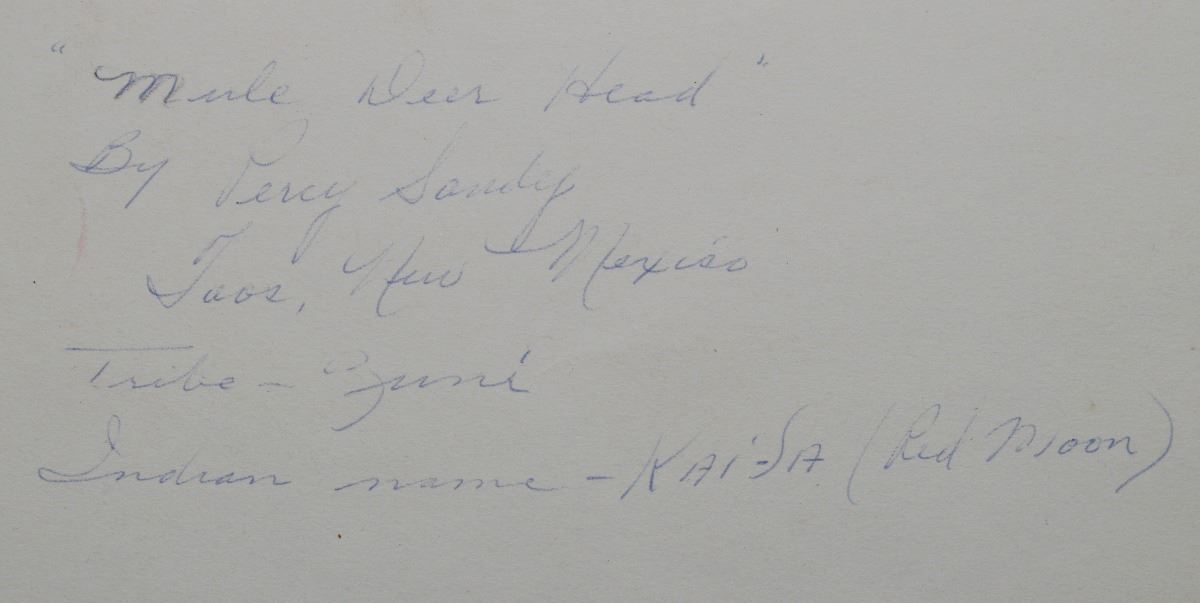 "Mule Deer Head"
By Percy Sandy
Taos, New Mexico
Tribe - Zuni
Indian name - KAi-SA (Red Moon)